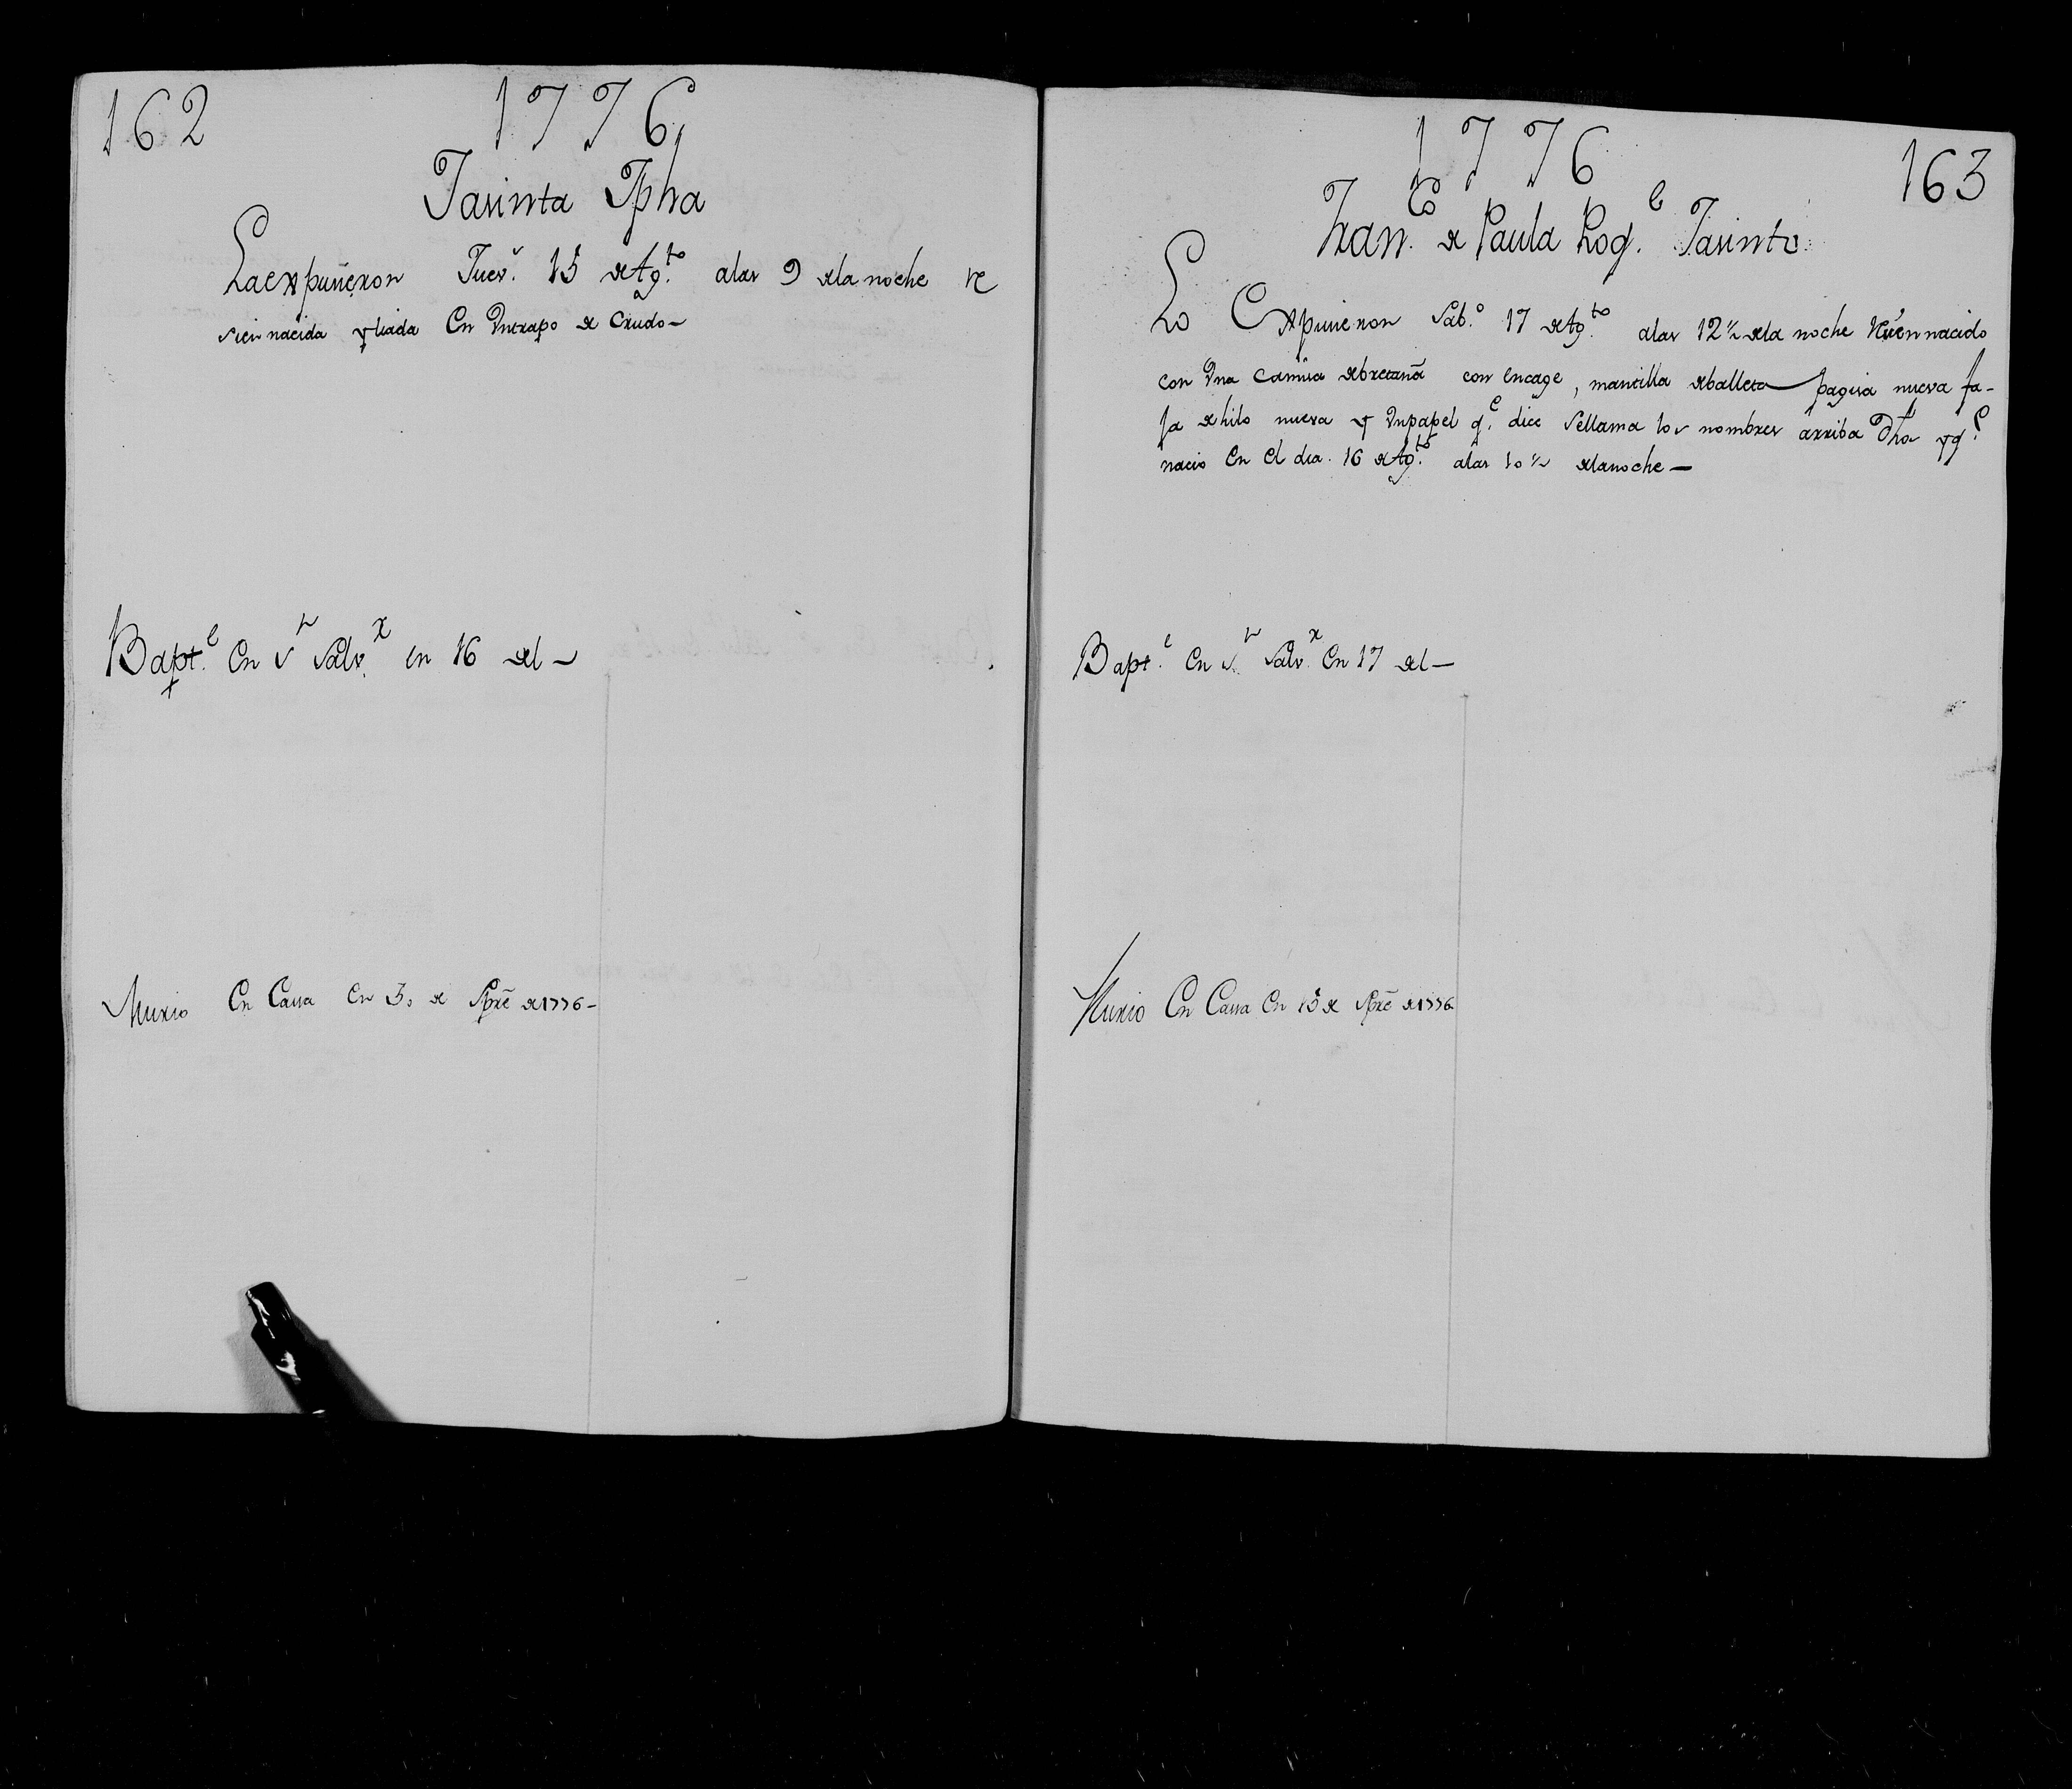 162
1776
Jasinta Jpha
La expusieron Juev.s 15 de Ag.to a las 9 de la noche re
sien nacida y liada en un trapo de crudo -
Bapt.e en S.n Salv.r en 16 del -
Murio en Cassa en 30 de Spre de 1776 -
1776
163
Fran.co de Paula Roq.e Jasinto
Lo expusieron Sab.o 17 de Ag.to a las 12 1/2 de la noche resien nacido
con una camisa de bretaña con encage, mantilla de balleta pagisa nueva fa-
fa de hilo nueva y un papel q.e dice se llama los nombres arriba dho y q.e
nacio en el dia 16 de Ag.to a las 10 1/2 de la noche -
Bapt.e en S.n Salv.r en 17 del -
Murio en Cassa en 15 de Spre de 1776